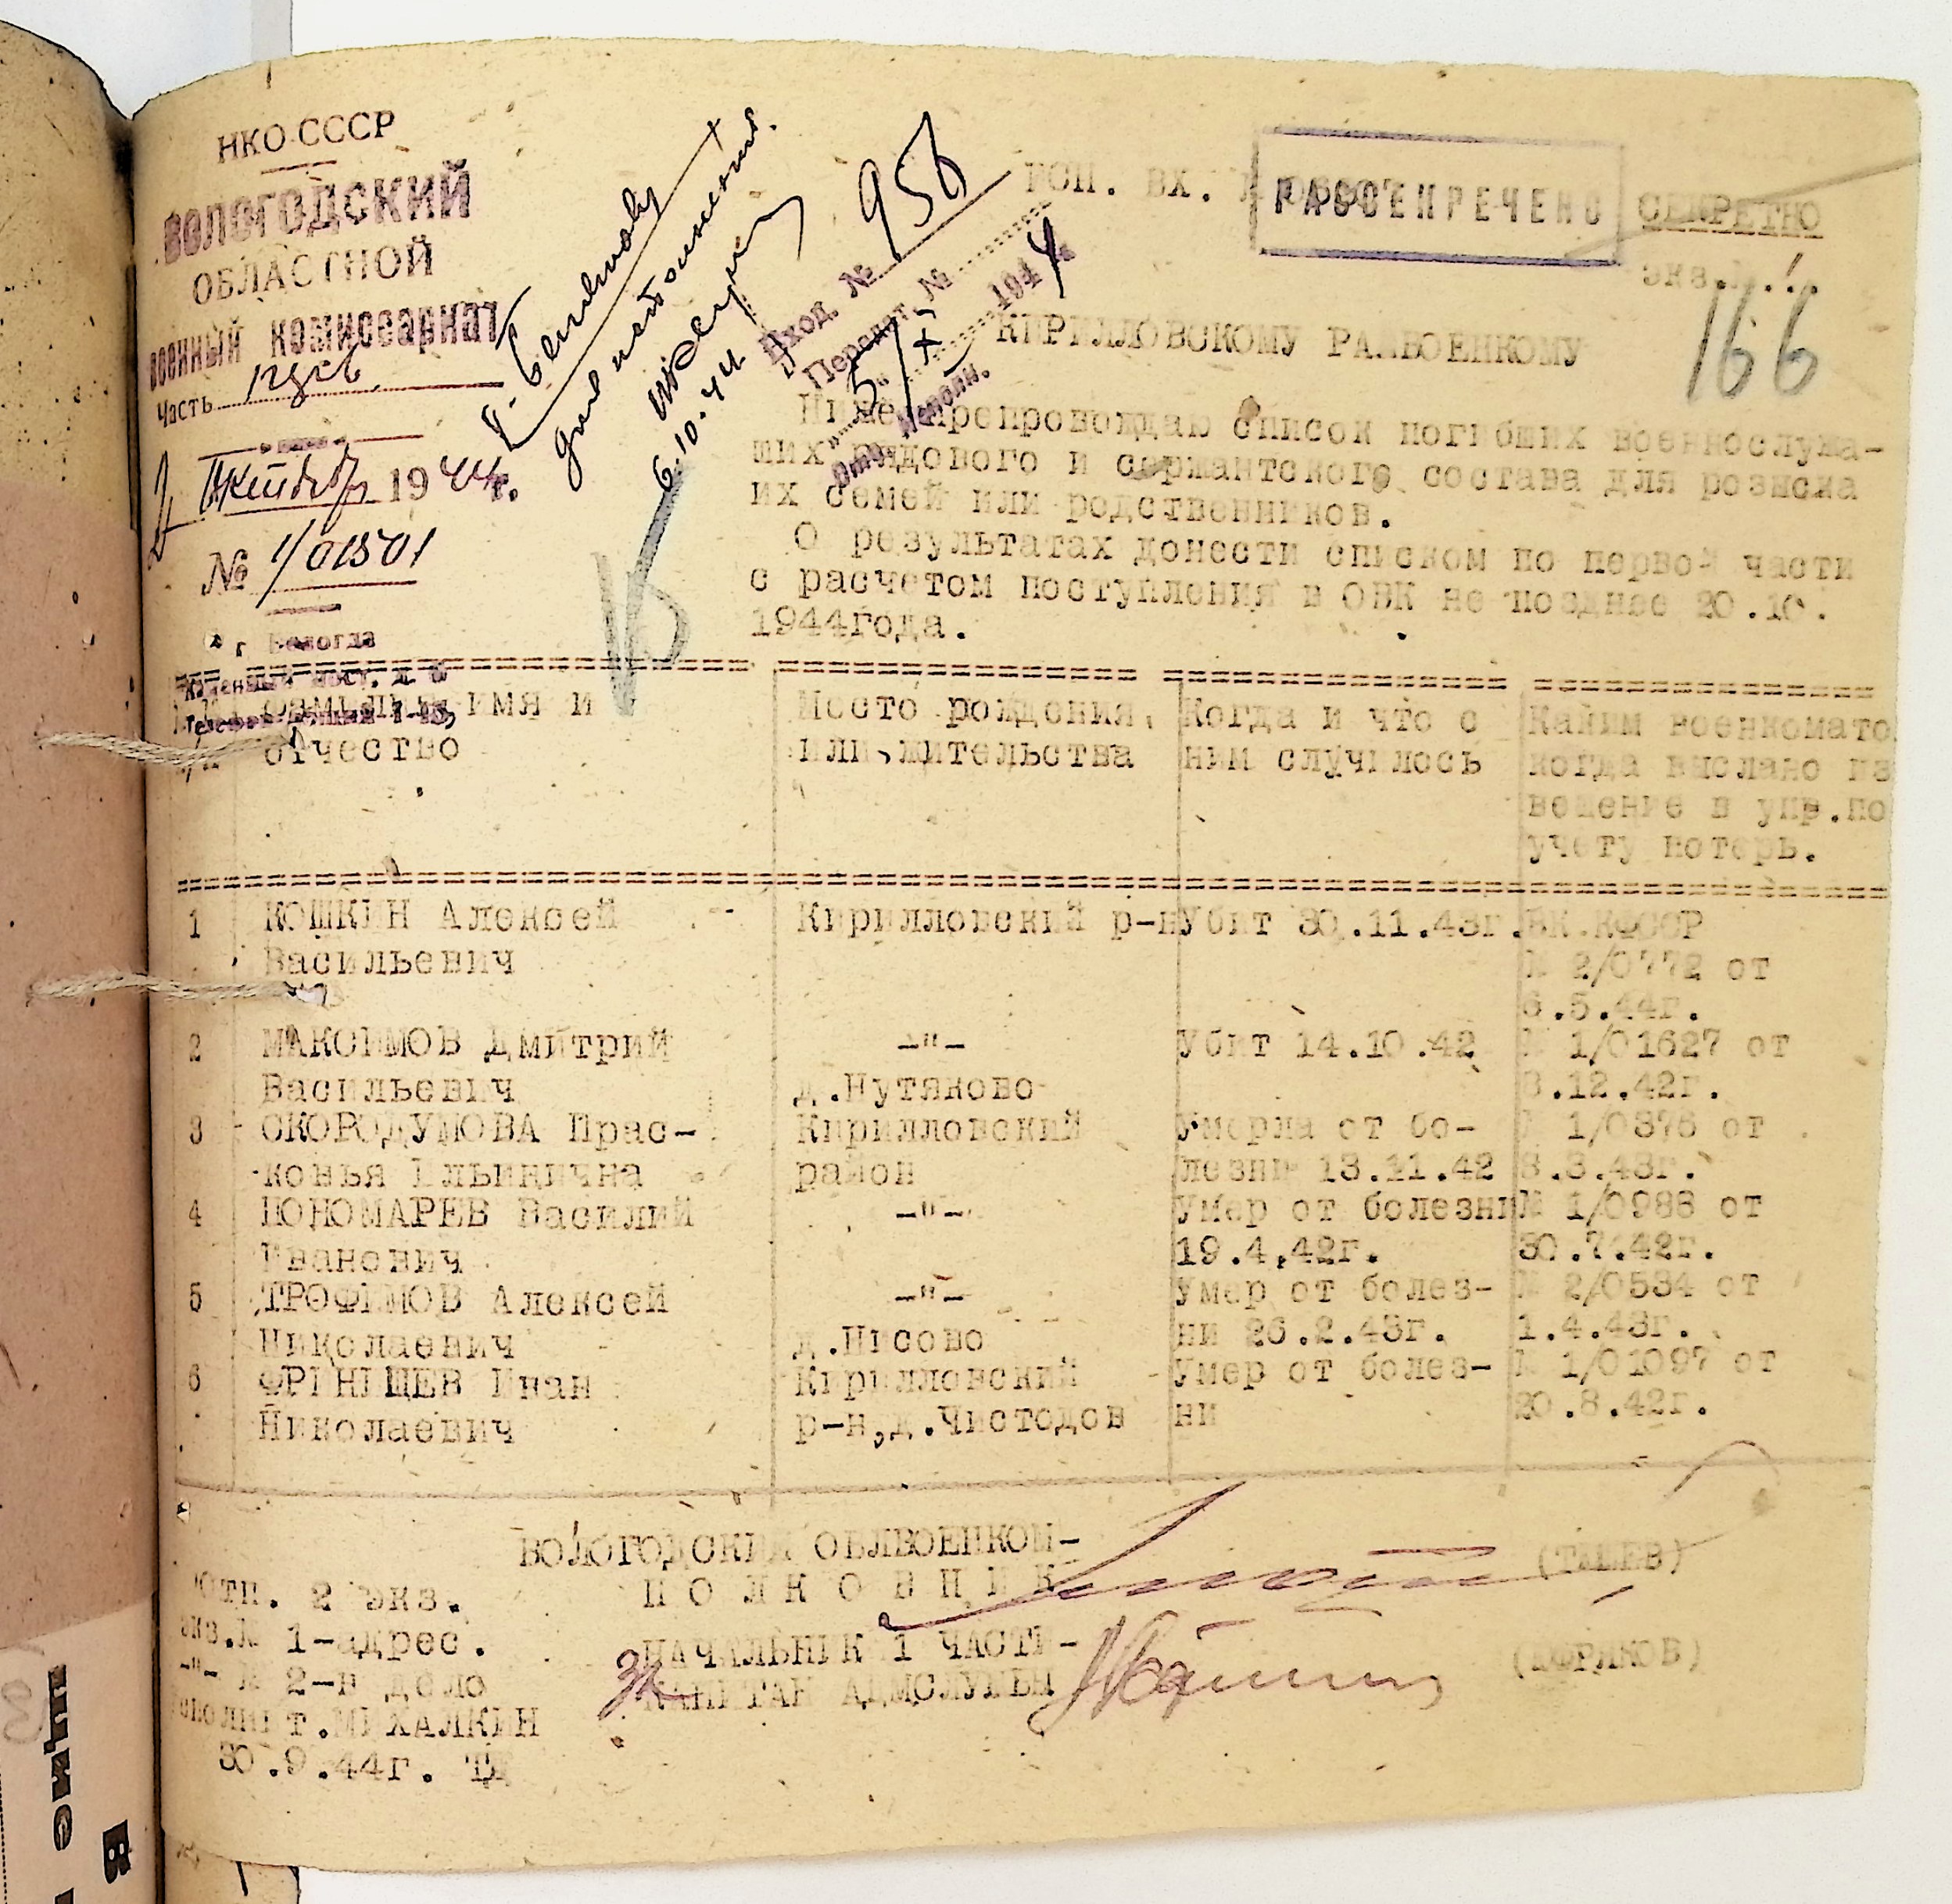 НКО СССР
ВОЛОГОДСКИЙ
ОБЛАСТНОЙ
военный комиссариат
часть
2 Октября 1944г.
№ 1/01501
г. Вологда
для исполнения.
6.10.44
Вход. № 956
Передат. №
5/X 1944
ВОП. ВХ.
РАССЕКРЕЧЕНО
СЕКРЕТНО
экз.№ 1.
166
КИРИЛЛОВСКОМУ РАЙВОЕНКОМУ
Ниже препровождаю список погибших военнослужа-
ших рядового и сержантского состава для розыска
их семей или родственников.
О результатах донести списком по первой части
с расчетом поступления в ОВК не позднее 20.10.
1944года.
Фамилия имя и
отчество
Место рождения,
или жительства
Когда и что с
ним случилось
Каким военкомато
когда выслано из
вещение в упр.по
учету потерь.
1 КОШКИН Алексей Кирилловский р-н Убит 30.11.43г. ВК.КФССР
Васильевич № 2/0772 от
6.5.44г.
2 МАКСИМОВ Дмитрий -"- Убит 14.10.42 № 1/01627 от
Васильевич д.Нутаково 3.12.42г.
3 СКОРОДУМОВА Прас- Кирилловский Умерла от бо- № 1/0376 от
ковья Ильинична район лезни 13.11.42 3.3.43г.
4 ПОНОМАРЕВ Василий -"- Умер от болезни № 1/0988 от
Иванович 19.4,42г. 30.7.42г.
5 ТРОФИМОВ Алексей -"- Умер от болез- № 2/0534 от
Николаевич д.Писово ни 26.2.43г. 1.4.43г.
6 ФРИНИЩЕВ Иван Кирилловский Умер от болез- № 1/01097 от
Николаевич р-н,д.Чистодов ни 20.8.42г.
ВОЛОГОДСКИЙ ОБЛВОЕНКОМ-
ПОЛКОВНИК
НАЧАЛЬНИК 1 ЧАСТИ-
КАПИТАН АДМСЛУЖБЫ
Отп. 2 экз.
экз.№ 1-адрес.
-"- № 2-в дело
исполнит.МИХАЛКИН
30.9.44г.